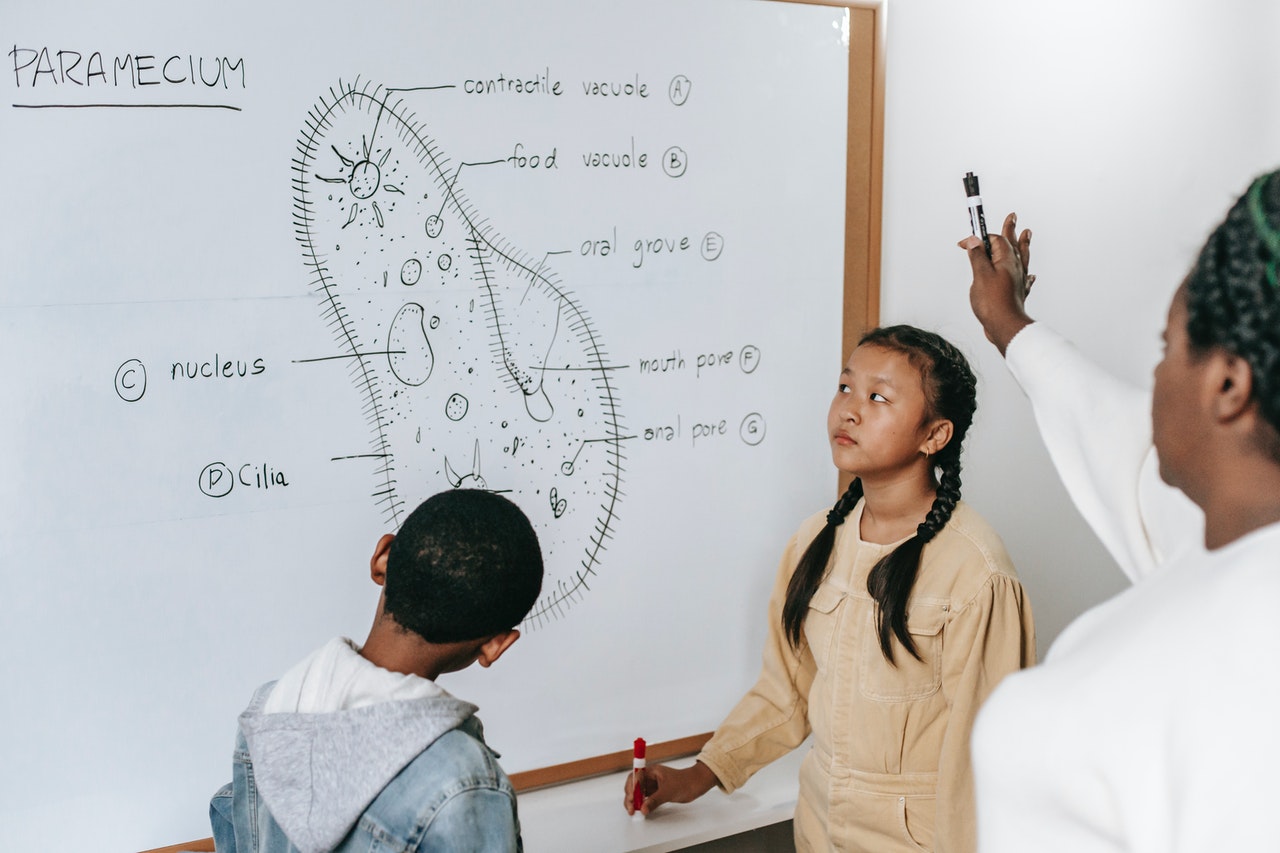 PARAMECIUM
contractile vacuole A
food vacuole B
oral grove E
C nucleus
mouth pore F
anal pore G
P Cilia